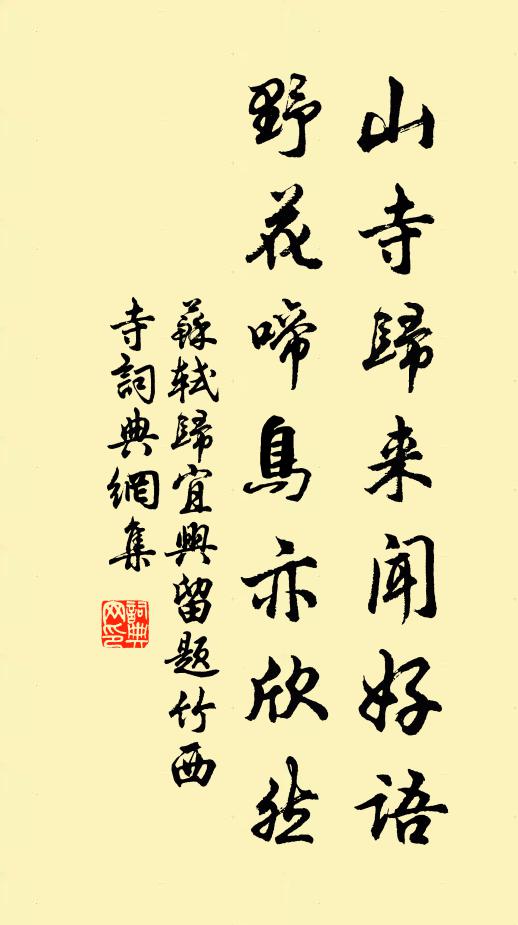 山寺歸来聞好語
野花啼鳥亦欣然
蘇軾歸宜興留题竹西
寺詞典網集
詞典网印